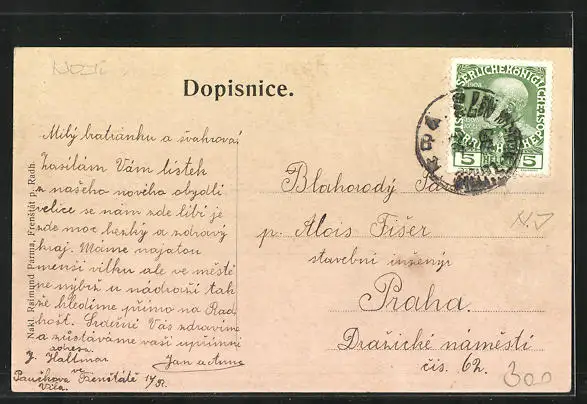 Dopisnice.
Milý bratránku a švahrová
Zasílám Vám lístek
z našeho nového obydlí
velice se nám zde líbí je
zde moc hezký a zdravý
kraj. Máme najatou
menší vilku ale ve městě
ne nýbrž u nádraží tak
že hledíme přímo na Rad
hošť. Srdečně Vás zdravíme
a zůstáváme vaši upřímní
adresa
J. Haltmar Jan a Anna
ve
Frenštátě 17/
Vila.
Nakl. Rajmund Parma, Frenštát p. Radh.
Blahorodý Pán
p. Alois Fišer
stavební inženýr
Praha.
Dražické náměstí
čís. 62.
300
N.J
5 5